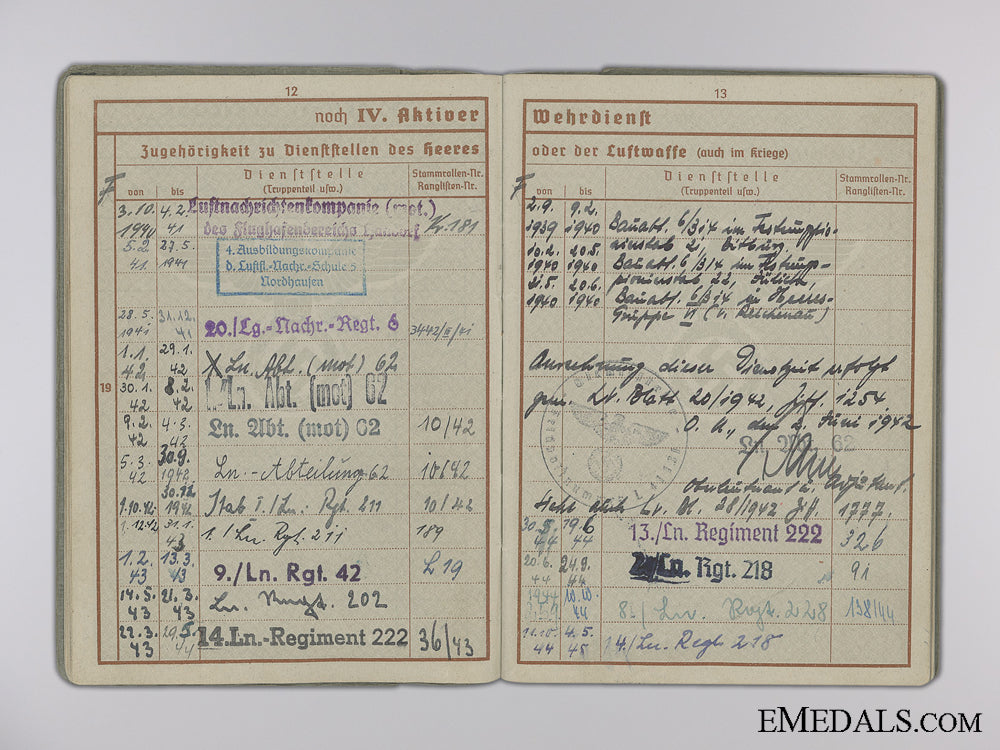 12
noch IV. Aktiver
Zugehörigkeit zu Dienststellen des Heeres
Dienststelle
(Truppenteil usw.)
Stammrollen-Nr.
Ranglisten-Nr.
von bis
3.10. 4.2. Luftnachrichtenkompanie (mot.)
1940 41 des Flughafenbereichs Kr. 181
5.2 27.5.
41. 1941
4. Ausbildungskompanie
d. Luftfl.-Nachr.-Schule 5
Nordhausen
28.5. 31.12.
1941 41 20./Lg.-Nachr.-Regt. 6
1.1. 29.1.
42 42 Ln. Abt. (mot) 62
19
30.1. 8.2.
42 42 1./Ln. Abt. (mot) 62
9.2. 4.3.
42 42 Ln. Abt. (mot) 62 10/42
5.3. 30.9.
42 1942 Ln.-Abteilung 62 10/42
30.12.
1.10.42 1942 Stab I/Ln. Rgt. 211 10/42
1.12.42 31.1.
43 1./Ln. Rgt. 211 189
1.2. 13.3.
43 43 9./Ln. Rgt. 42 L 19
14.3. 21.3.
43 43 Ln. 202
22.3. 29.5.
43 44 14.Ln.-Regiment 222 36/43
13
Wehrdienst
oder der Luftwaffe (auch im Kriege)
Dienststelle
(Truppenteil usw.)
Stammrollen-Nr.
Ranglisten-Nr.
von bis
2.9. 9.2.
1939 1940 Bauabt. 6/314 im Festungspio-
nierstab 21, Bitburg,
10.2. 20.5.
1940 1940 Bauabt. 6/314 im Festungs-
pionierstab 22, Jülich,
21.5. 20.6.
1940 1940 Bauabt. 6/314 in Heeres-
Gruppe VI (v. Reichenau)
Anrechnung dieser Dienstzeit erfolgt
gem. Lv. Blatt 20/1942, Ziff. 1254
O.U., den 2. Juni 1942
Ln. Abt. 62
Oberleutnant u. Adjutant.
Lv. Bl. 28/1942 Ziff. 1777.
30.5. 19.6
44 44 13./Ln. Regiment 222 326
20.6. 24.9.
44 44 Ln. Rgt. 218 91
1944 10.10.
44 8./Ln. Regt. 228 138/44
11.10. 4.5.
44 45 14./Ln. Regt. 218
EMEDALS.COM